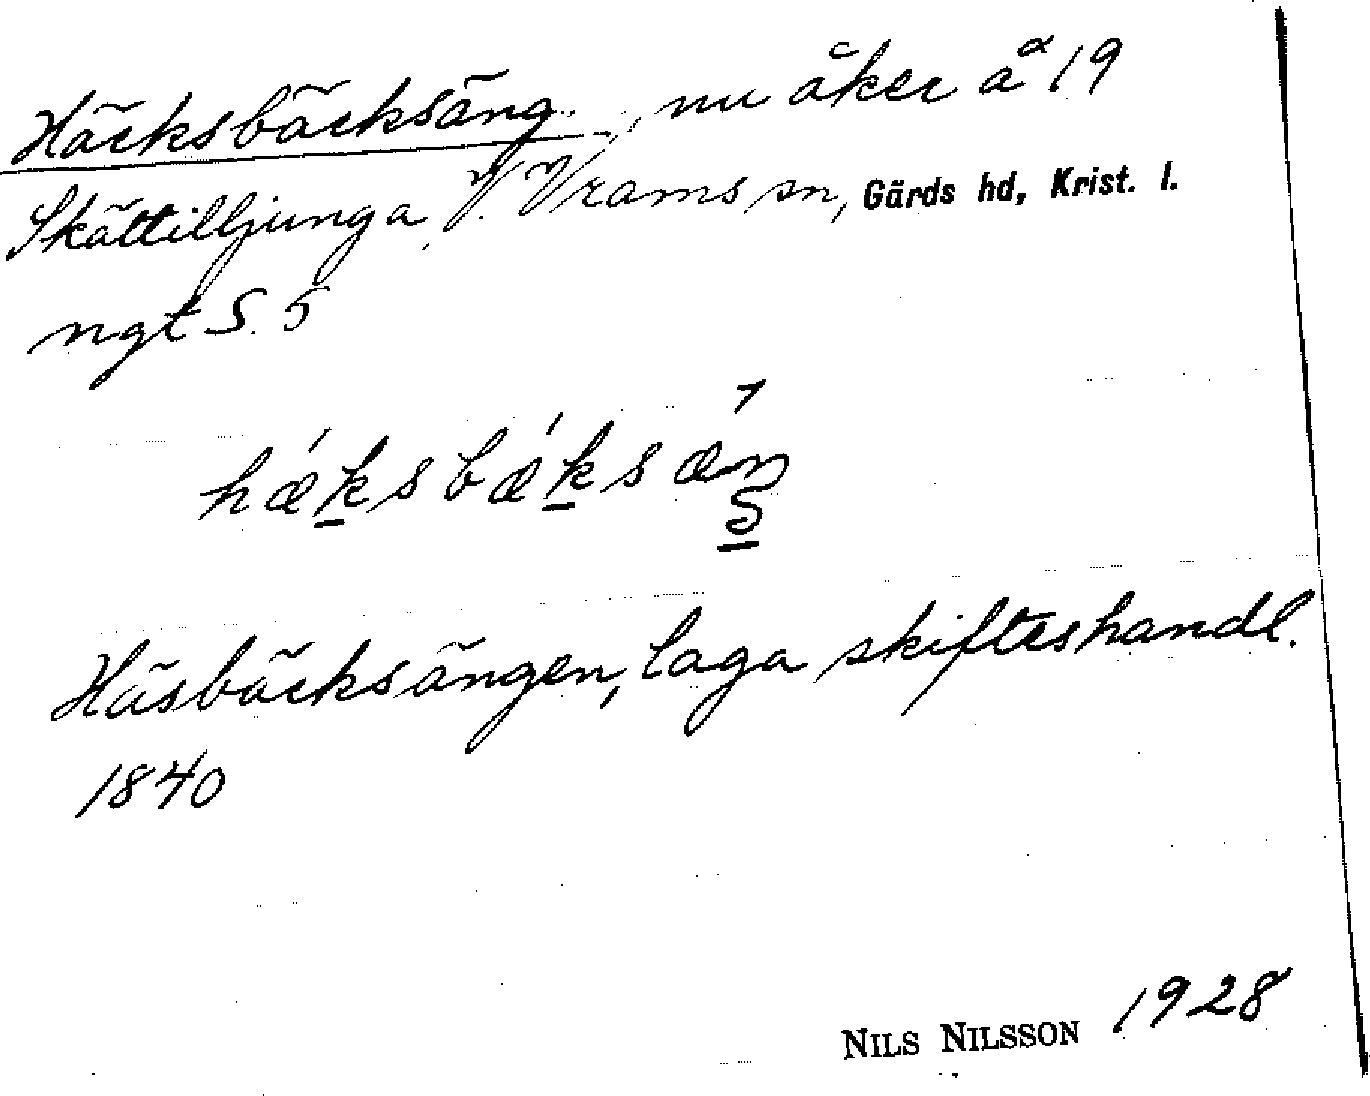 Häcksbäcksäng, nu åker å 19
Skättilljunga, V. Vrams sn, Gärds hd, Krist. l.
ngt S. 5
hǽksbǽksæŋ
Häsbäcksängen, laga skifteshandl.
1840
NILS NILSSON 1928